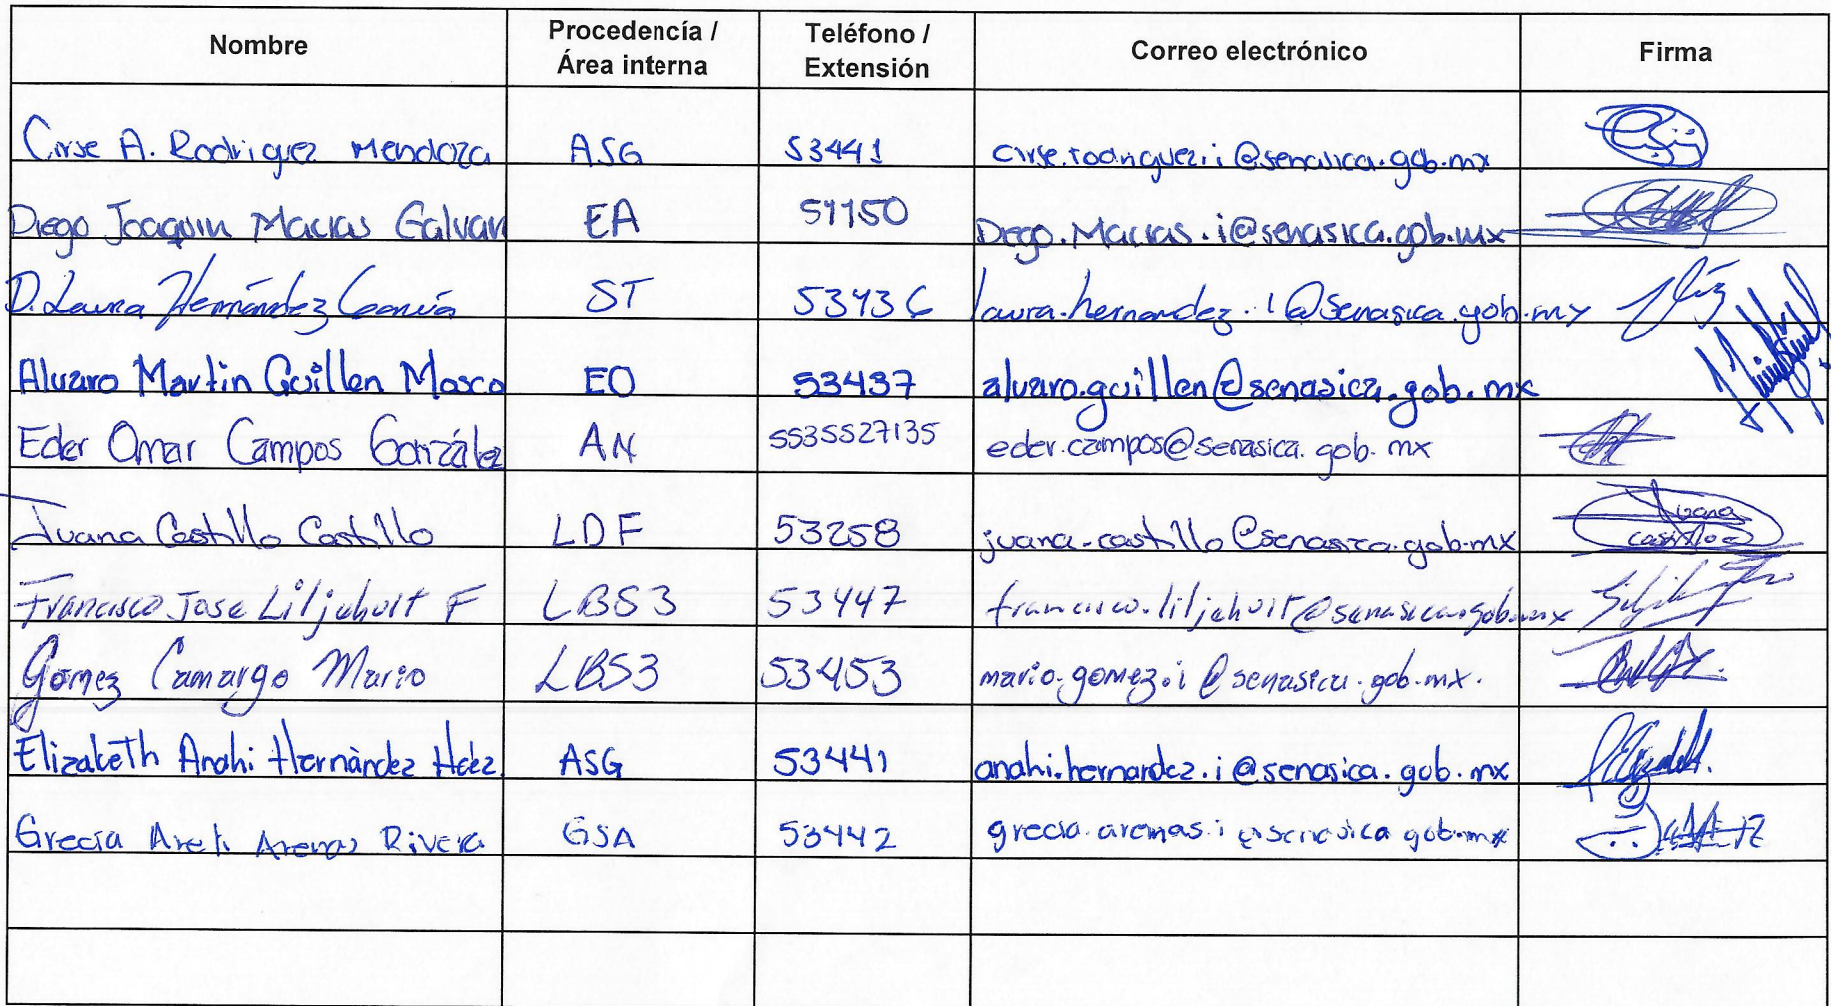 Nombre Procedencía / Área interna Teléfono / Extensión Correo electrónico Firma
Cirse A. Rodriguez Mendoza ASG 53441 cirse.rodriguez.i@senasica.gob.mx
Diego Joaquin Macias Galvan EA 51150 Diego.Macias.i@senasica.gob.mx
D. Laura Hernández García ST 53436 laura.hernandez.i@senasica.gob.mx
Alvaro Martin Guillen Mosco EO 53437 alvaro.guillen@senasica.gob.mx
Eder Omar Campos González AN 5535527135 eder.campos@senasica.gob.mx
Juana Castillo Castillo LDF 53258 juana.castillo@senasica.gob.mx Juana Castillo C
Francisco Jose Liljehult F LBS3 53447 francisco.liljehult@senasica.gob.mx
Gómez Camargo Mario LBS3 53453 mario.gomez.i@senasica.gob.mx.
Elizabeth Anahi Hernàndez Hdez. ASG 53441 anahi.hernandez.i@senasica.gob.mx
Grecia Areli Arenas Rivera GSA 53442 grecia.arenas.i@senasica.gob.mx